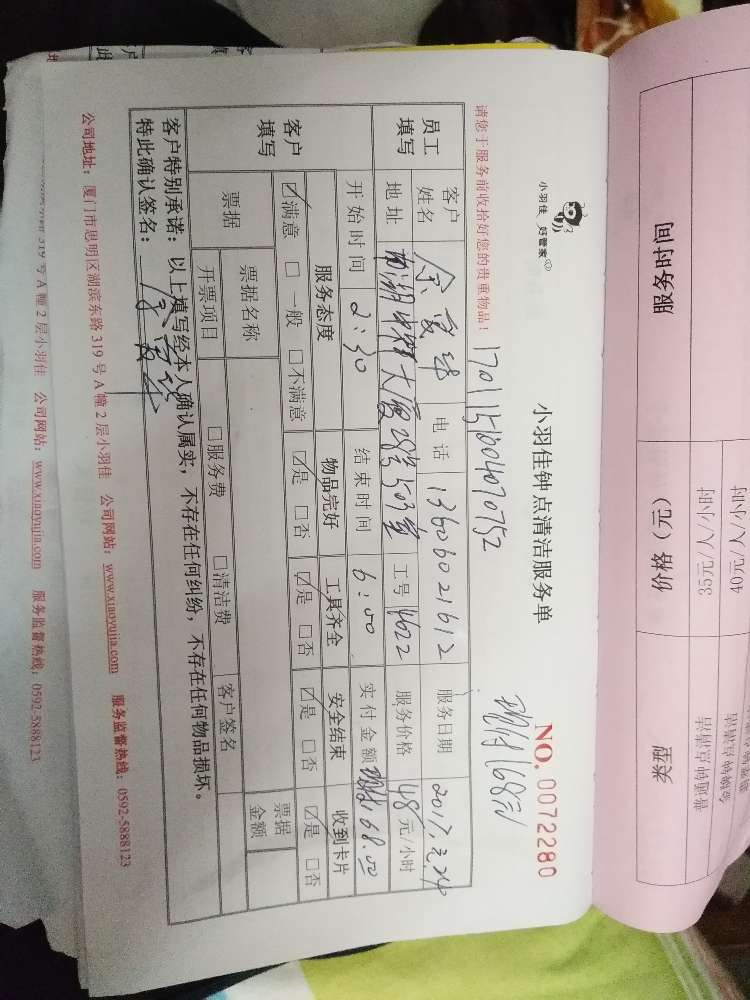 小羽佳 好管家
小羽佳钟点清洁服务单
NO. 0072280
请您于服务前收拾好您的贵重物品！
1701151004070752
现付168元
员工填写
客户姓名
电话 13606021612
服务日期 2017.
地址 大厦28号503室
工号 4622
服务价格 48元/小时
开始时间 2:30
结束时间 6:00
实付金额 现付168.00
客户填写
服务态度 物品完好 工具齐全 安全结束 收到卡片
☑满意 □一般 □不满意 ☑是 □否 ☑是 □否 ☑是 □否 ☑是 □否
票据
票据名称
票据金额
开票项目 □服务费 □清洁费 客户签名
客户特别承诺：以上填写经本人确认属实，不存在任何纠纷，不存在任何物品损坏。
特此确认签名：
公司地址：厦门市思明区湖滨东路319号A幢2层小羽佳 公司网站：www.xiaoyujia.com 服务监督热线：0592-5888123
319号A幢2层小羽佳 公司网站：www.xiaoyujia.com 服务监督热线：0592-5888123
服务时间
价格（元）
类型
35元/人/小时
40元/人/小时